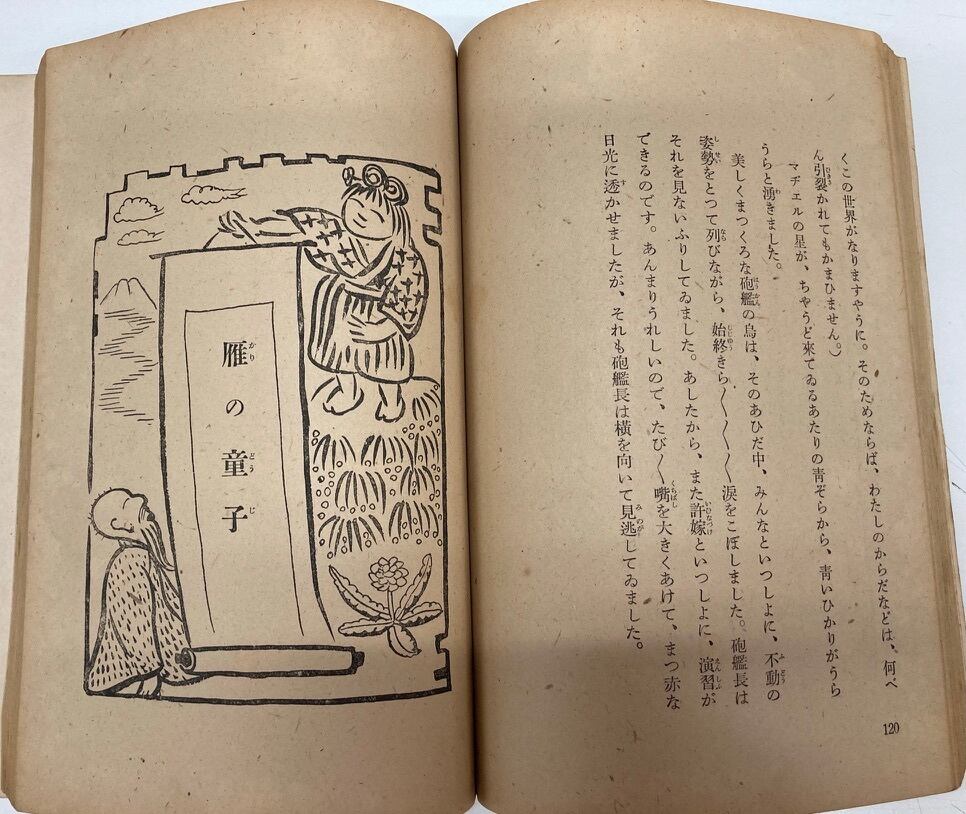 くこの世界がなりますやうに。そのためならば、わたしのからだなどは、何べ
ん引裂かれてもかまひません。)
マヂエルの星が、ちやうど來てゐるあたりの青ぞらから、青いひかりがうら
うらと湧きました。
美しくまつくろな砲艦の烏は、そのあひだ中、みんなといつしよに、不動の
姿勢をとつて列びながら、始終きら〳〵〳〵〳〵涙をこぼしました。砲艦長は
それを見ないふりしてゐました。あしたから、また許嫁といつしよに、演習が
できるのです。あんまりうれしいので、たび〳〵嘴を大きくあけて、まつ赤な
日光に透かせましたが、それも砲艦長は橫を向いて見逃してゐました。
120
雁の童子